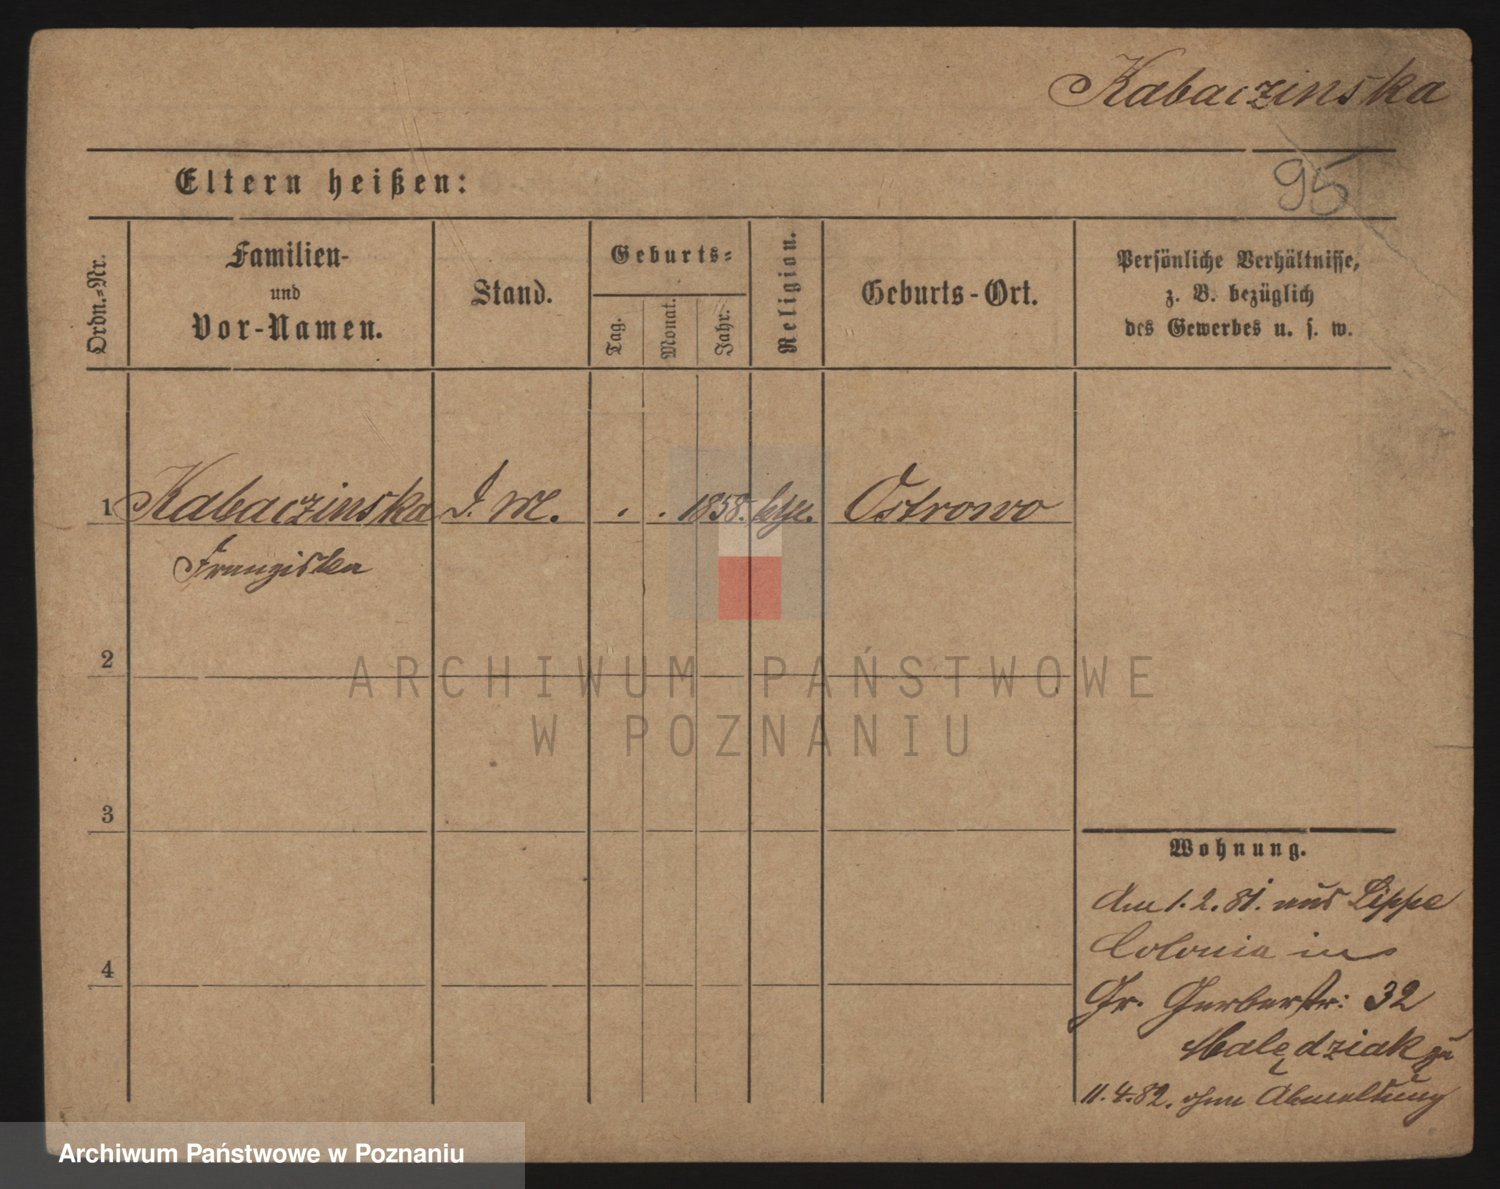 Kabaczinska
95
Eltern heißen:
Ordn.-Nr.
Familien-
und
Vor-Namen.
Stand.
Geburts-
Tag.
Monat.
Jahr.
Religion.
Geburts-Ort.
Persönliche Verhältnisse,
z. B. bezüglich
des Gewerbes u. s. w.
1 Kabaczinska D. M. . . 1858. kth. Ostrowo
Franziska
2
3
4
Wohnung.
Am 1.2.81. aus Lippe
Colonia in
Gr. Gerberstr: 32
Malędziak zu
11.4.82. ohne Abmeldung
ARCHIWUM PAŃSTWOWE
W POZNANIU
Archiwum Państwowe w Poznaniu